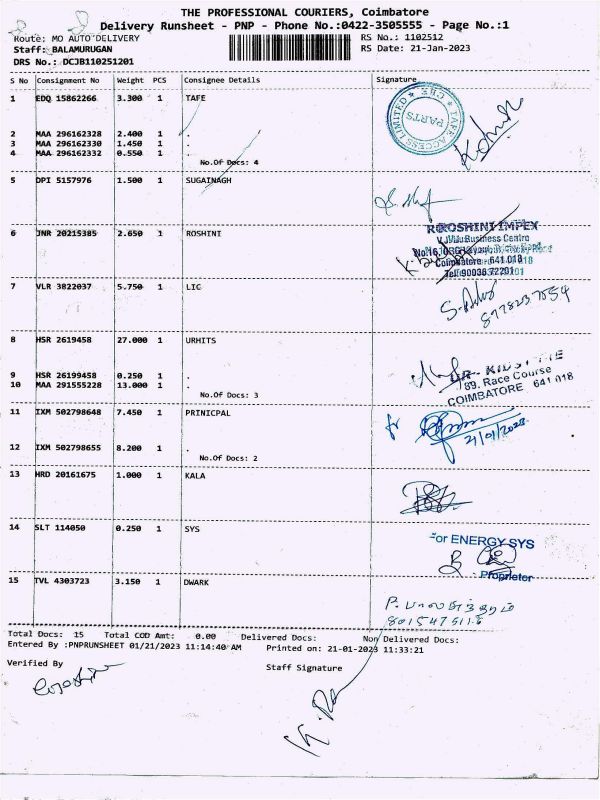 THE PROFESSIONAL COURIERS, Coimbatore
Delivery Runsheet - PNP - Phone No.:0422-3505555 - Page No.:1
Route: MO AUTO DELIVERY RS No.: 1102512
Staff: BALAMURUGAN RS Date: 21-Jan-2023
DRS No.: DCJB110251201
S No Consignment No Weight PCS Consignee Details Signature
1 EDQ 15862266 3.300 1 TAFE
TAFE ACCESS LIMITED CBE
PARTS
2 MAA 296162328 2.400 1 .
3 MAA 296162330 1.450 1 .
4 MAA 296162332 0.550 1 .
No.Of Docs: 4
5 DPI 5157976 1.500 1 SUGAINAGH
6 JNR 20215385 2.650 1 ROSHINI
ROOSHINI IMPEX
Business Centre
Coimbatore 641 018
Tel: 90036 72201
7 VLR 3822037 5.750 1 LIC
8778237554
8 HSR 2619458 27.000 1 URHITS
9 HSR 26199458 0.250 1 .
10 MAA 291555228 13.000 1 .
89. Race Course
COIMBATORE 641 018
No.Of Docs: 3
11 IXM 502798648 7.450 1 PRINICPAL
21/01/2023
12 IXM 502798655 8.200 1 .
No.Of Docs: 2
13 HRD 20161675 1.000 1 KALA
14 SLT 114050 0.250 1 SYS
For ENERGY SYS
Proprietor
15 TVL 4303723 3.150 1 DWARK
P. பாலசுந்தரம்
8015475116
Total Docs: 15 Total COD Amt: 0.00 Delivered Docs: Non Delivered Docs:
Entered By :PNPRUNSHEET 01/21/2023 11:14:40 AM Printed on: 21-01-2023 11:33:21
Verified By Staff Signature